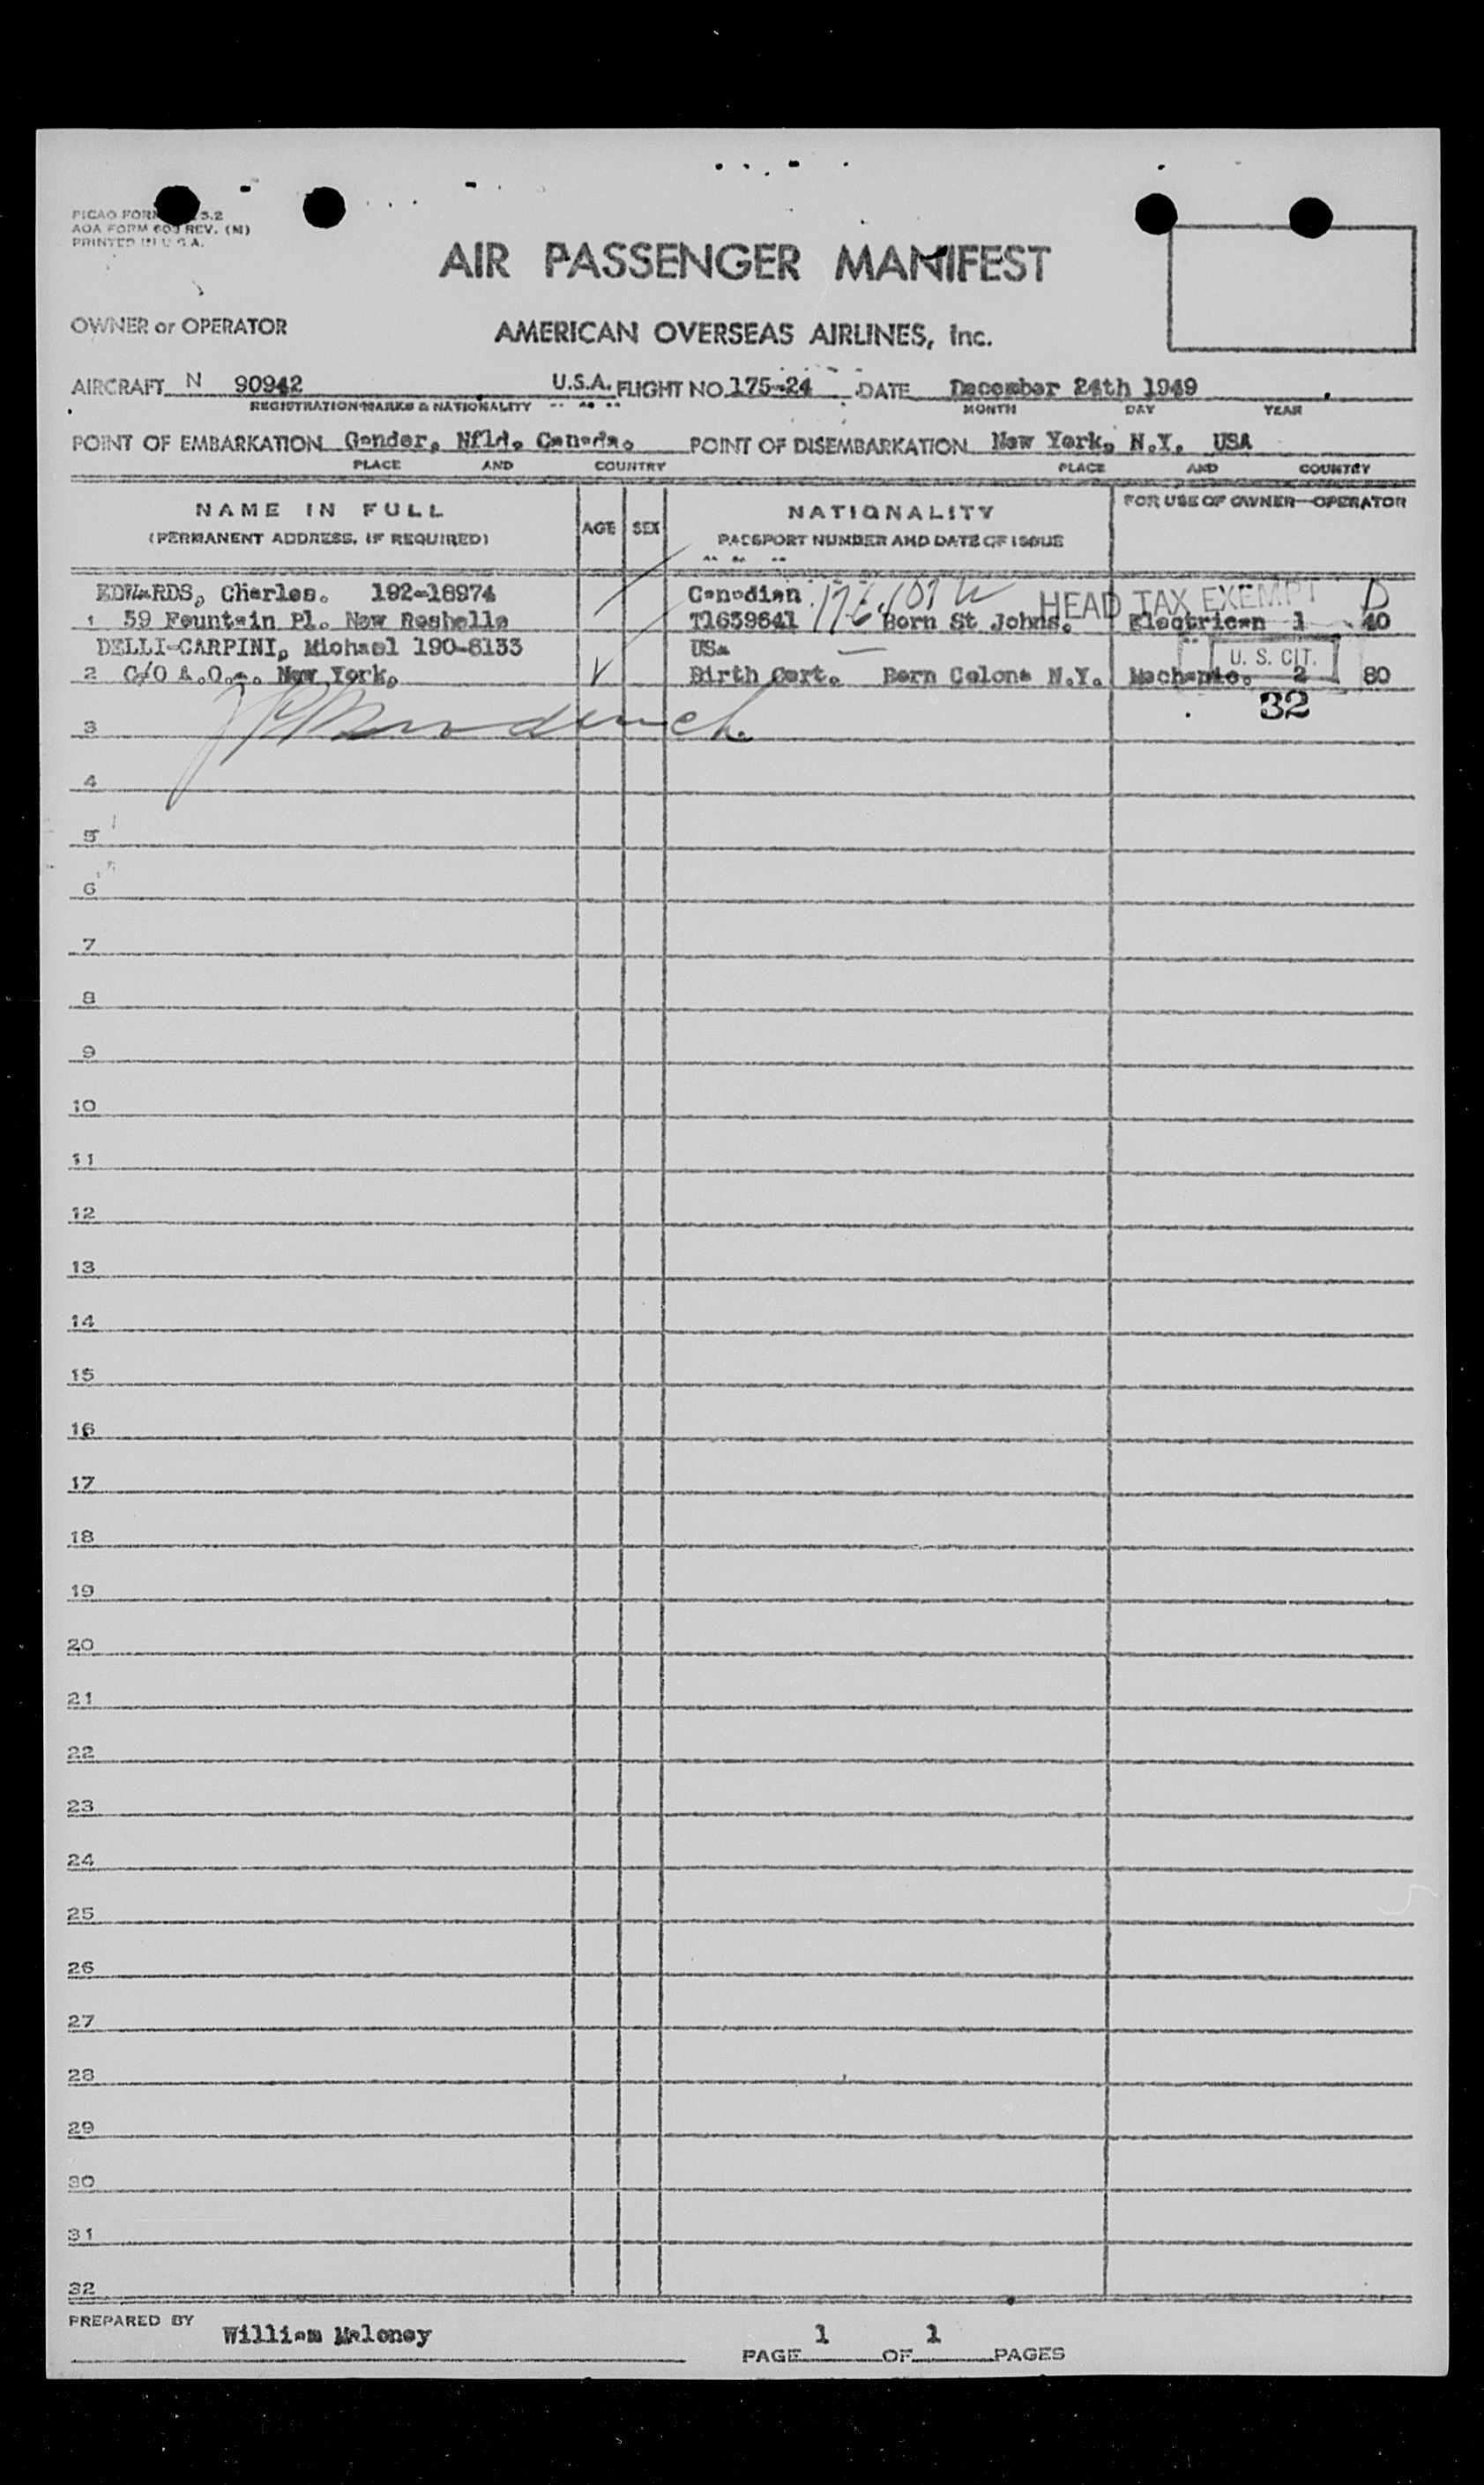 PICAO FORM 5.2
AOA FORM 603 REV. (M)
PRINTED IN U.S.A.
AIR PASSENGER MANIFEST
OWNER or OPERATOR AMERICAN OVERSEAS AIRLINES, Inc.
AIRCRAFT N 90942 U.S.A. FLIGHT NO. 175-24 DATE December 24th 1949
REGISTRATION MARKS & NATIONALITY MONTH DAY YEAR
POINT OF EMBARKATION Gander, Nfld. Canada. POINT OF DISEMBARKATION New York, N.Y. USA
PLACE AND COUNTRY PLACE AND COUNTRY
NAME IN FULL AGE SEX NATIONALITY FOR USE OF OWNER—OPERATOR
(PERMANENT ADDRESS, IF REQUIRED) PASSPORT NUMBER AND DATE OF ISSUE
EDWARDS, Charles. 192-18974 Canadian HEAD TAX EXEMPT D
1 59 Fountain Pl. New Roshelle T1639641 Born St Johns. Electrican 1 40
DELLI-CARPINI, Michael 190-8133 USA U. S. CIT.
2 C/O A.O.A. New York, Birth Cert. Born Colona N.Y. Mechanic. 2 80
32
3
4
5
6
7
8
9
10
11
12
13
14
15
16
17
18
19
20
21
22
23
24
25
26
27
28
29
30
31
32
PREPARED BY William Maloney
PAGE 1 OF 1 PAGES